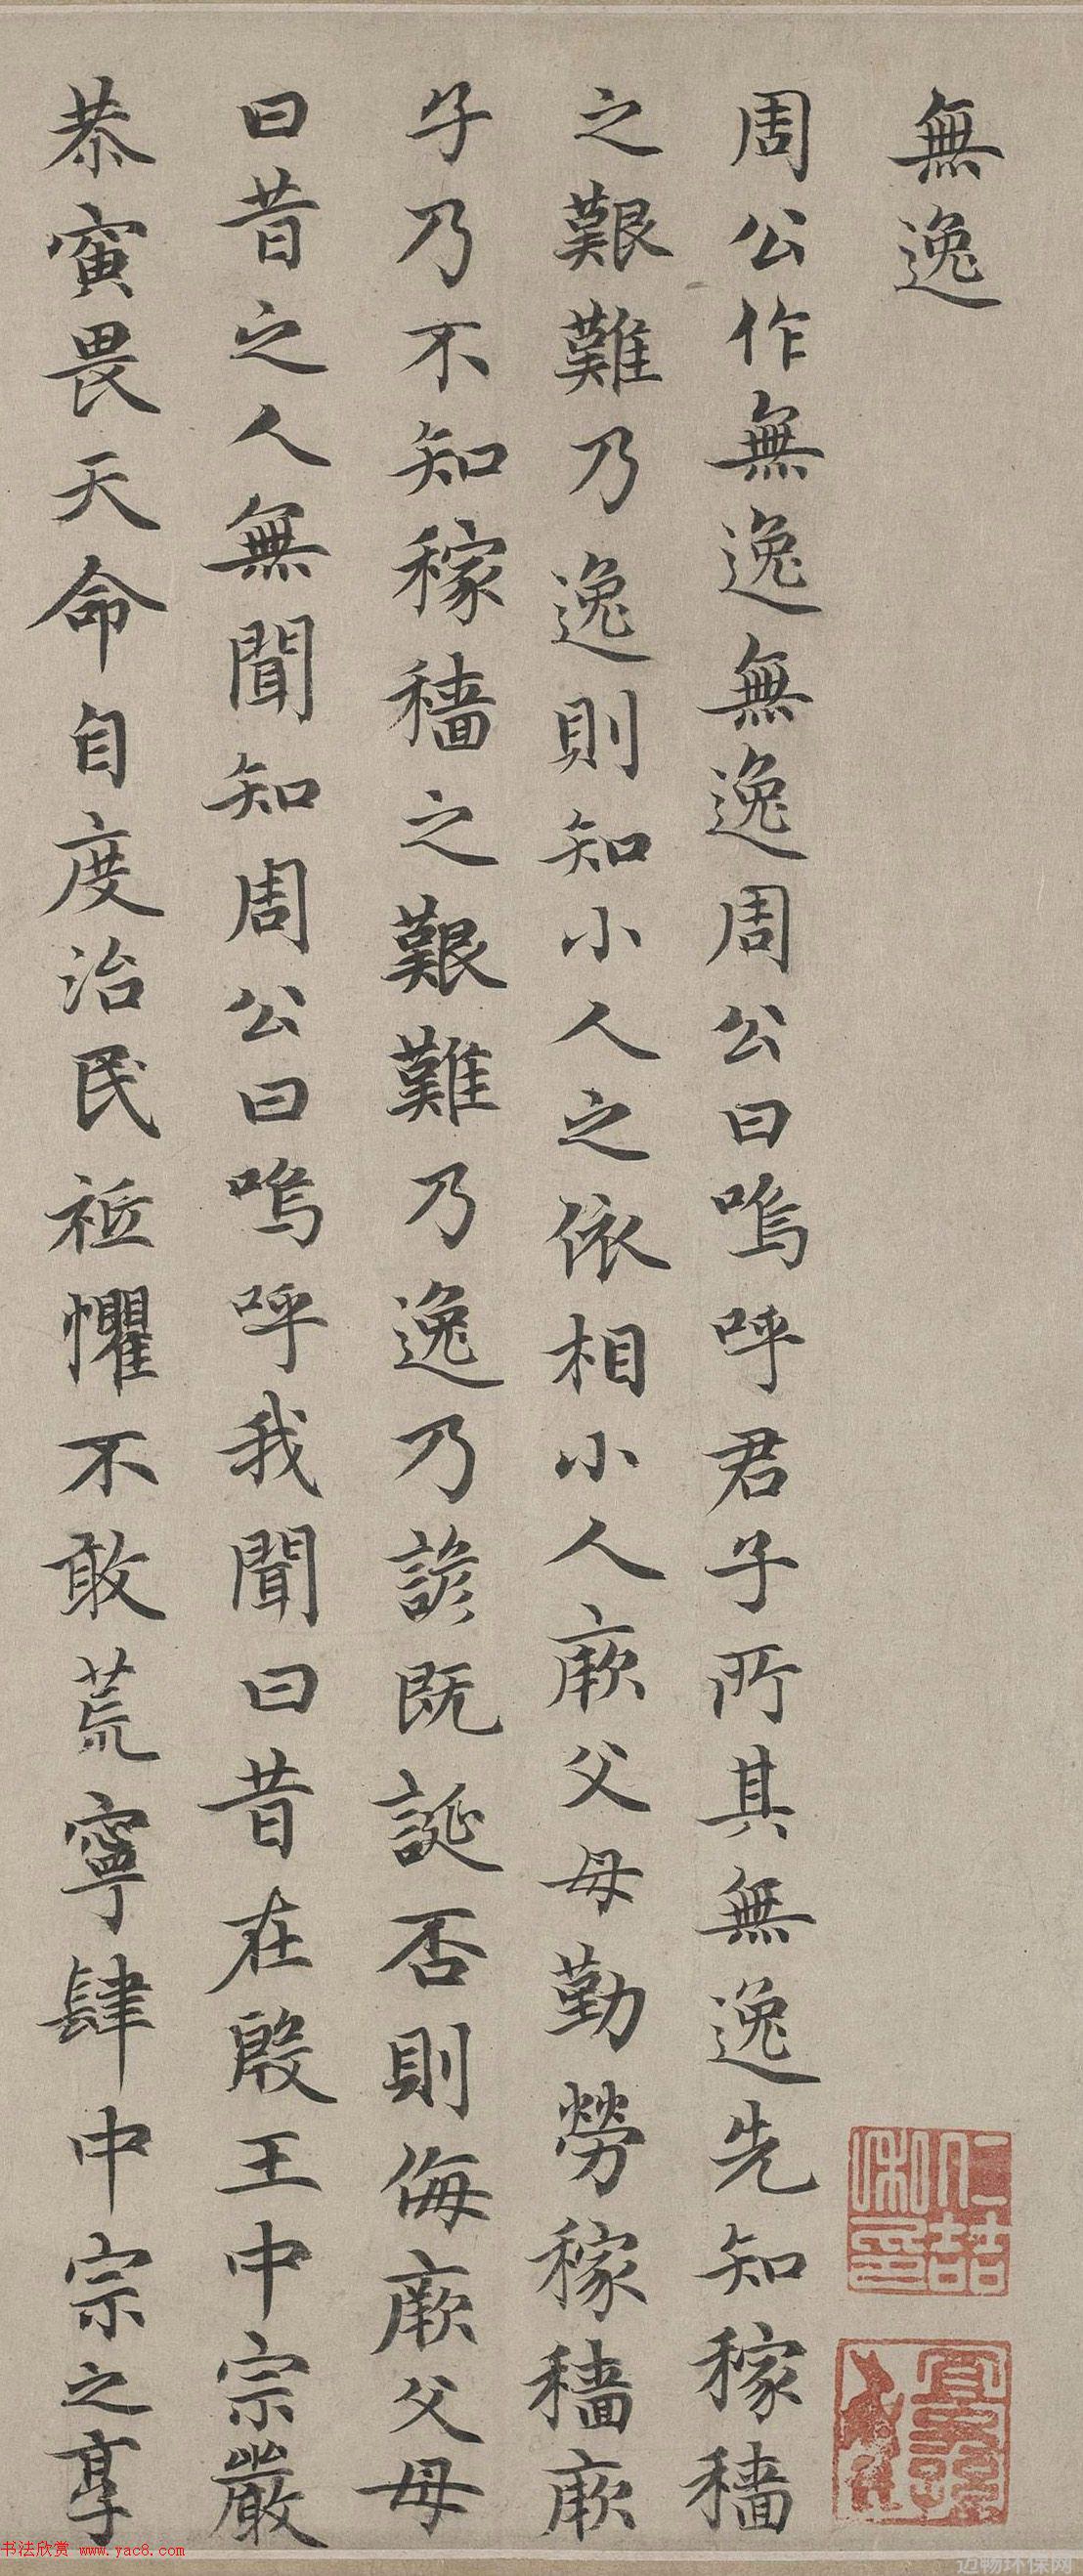 無逸
周公作無逸無逸周公曰嗚呼君子所其無逸先知稼穡
之艱難乃逸則知小人之依相小人厥父母勤勞稼穡厥
子乃不知稼穡之艱難乃逸乃諺既誕否則侮厥父母
曰昔之人無聞知周公曰嗚呼我聞曰昔在殷王中宗嚴
恭寅畏天命自度治民祗懼不敢荒寧肆中宗之享
书法欣赏 www.yac8.com
迈畅环保网